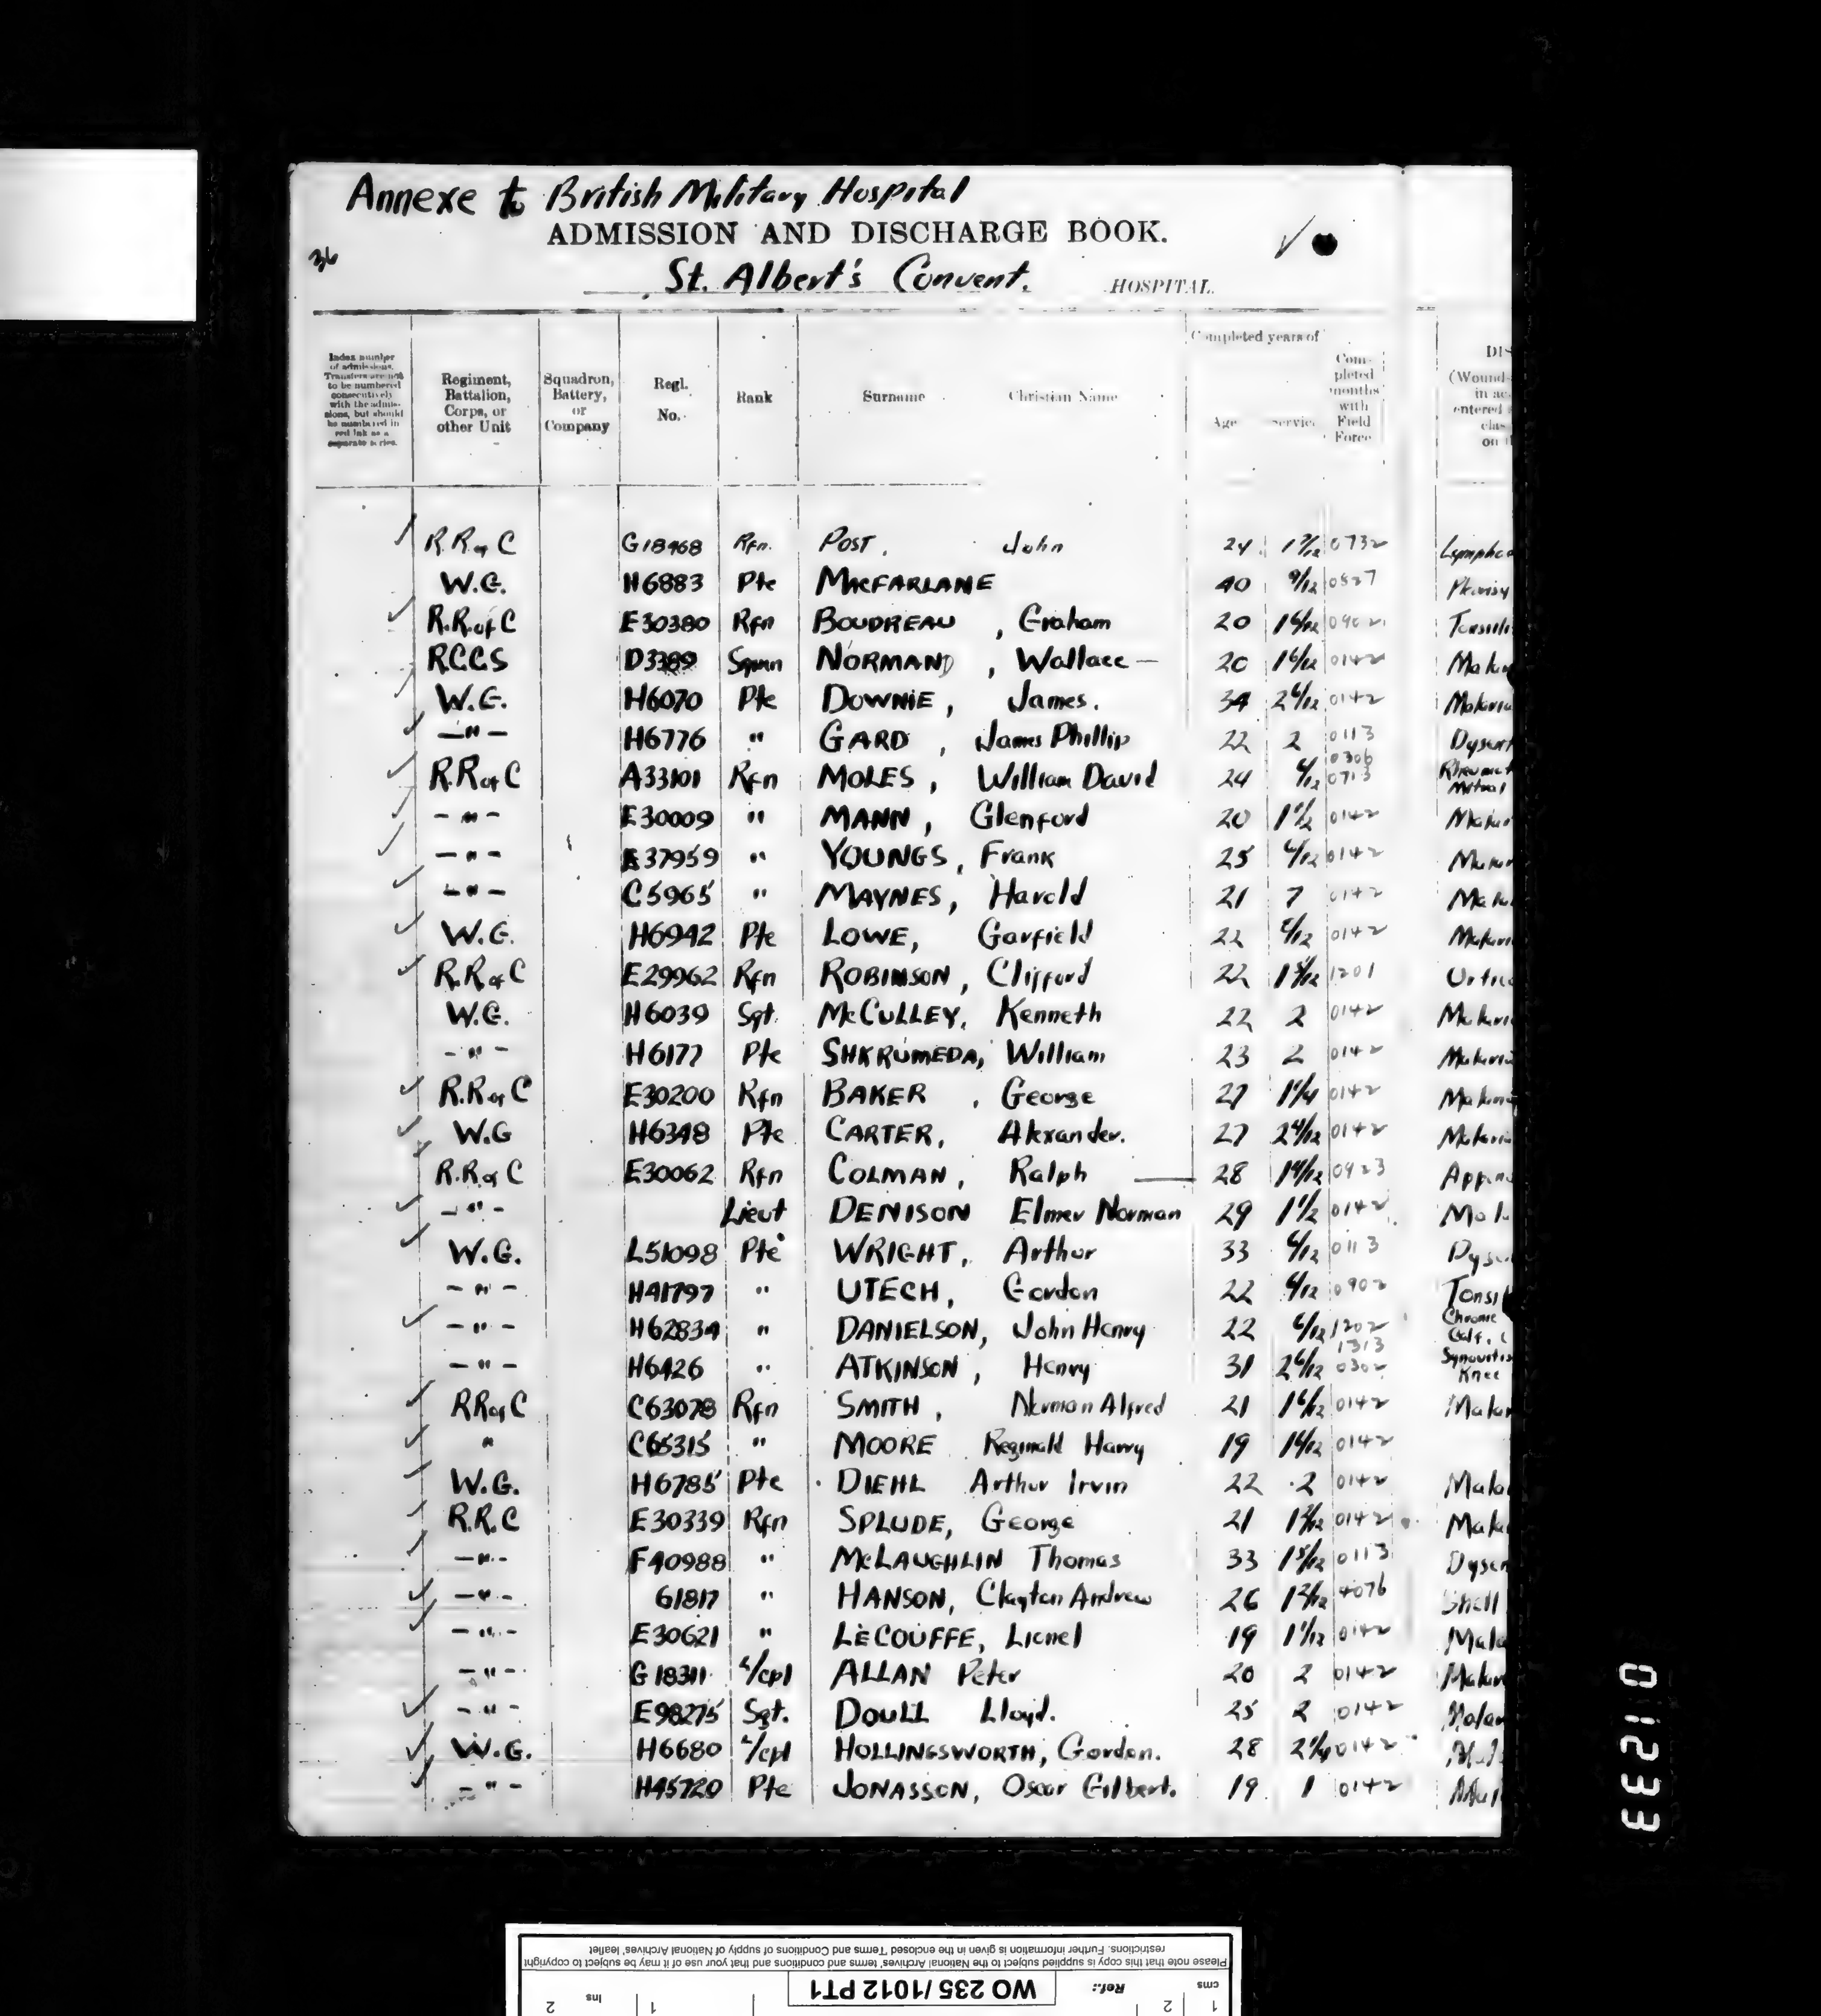 Annexe to British Military Hospital
ADMISSION AND DISCHARGE BOOK.
36
St. Albert's Convent. HOSPITAL.
Completed years of
Index number of admissions. Transfers are not to be numbered consecutively with the admissions, but should be numbered in red ink as a separate series.
Regiment, Battalion, Corps, or other Unit
Squadron, Battery, or Company
Regl. No.
Rank
Surname
Christian Name
Age
Service
Completed months with Field Force
DIS
(Wound-
in ac
entered
clas
on t
R.R of C G18468 Rfn. POST, John 24 0732
W.G. H6883 Pte MACFARLANE 40 9/12 0827 Pleurisy
R.R. of C E30380 Rfn BOUDREAU, Graham 20 1 6/12 0902 Tonsilli
R.C.C.S D3389 NORMAND, Wallace — 20 1 6/12 0142 Malar
W.G. H6070 Pte DOWNIE, James. 34 2 6/12 0142 Malaria
—"— H6776 " GARD, James Phillip 22 2 0113 Dysent
R.R of C A33101 Rfn MOLES, William David 24 6/12 0306 0713
—"— E30009 " MANN, Glenford 20 1 1/2 0142 Malar
—"— E37959 " YOUNGS, Frank 25 6/12 0142 Malar
—"— C5965 " MAYNES, Harold 21 7 0142 Mala
W.G. H6942 Pte LOWE, Garfield 22 6/12 0142 Malari
R.R of C E29962 Rfn ROBINSON, Clifford 22 1 5/12 1201 Urtic
W.G. H6039 Sgt. McCULLEY, Kenneth 22 2 0142 Malari
—"— H6177 Pte SHKRUMEDA, William 23 2 0142 Malaria
R.R of C E30200 Rfn BAKER, George 27 1 1/4 0142 Malari
W.G H6348 Pte CARTER, Alexander. 27 2 4/12 0142 Malari
R.R of C E30062 Rfn COLMAN, Ralph — 28 0923 Appen
—"— Lieut DENISON Elmer Norman 29 1 1/2 0142 Mal
W.G. L51098 Pte WRIGHT, Arthur 33 6/12 0113 Dyse
—"— H41797 " UTECH, Gordon 22 6/12 0902 Tonsil
—"— H62834 " DANIELSON, John Henry 22 6/12 1202 Chronic
—"— H6426 " ATKINSON, Henry 31 2 6/12 1313 0302 Synovitis Knee
RR of C C63078 Rfn SMITH, Norman Alfred 21 1 6/12 0142 Malar
" C65315 " MOORE Reginald Harry 19 1 6/12 0142
W.G. H6785 Pte DIEHL Arthur Irvin 22 2 0142 Mala
R.R.C E30339 Rfn SPLUDE, George 21 0142 Malar
—"— F40988 " McLAUGHLIN Thomas 33 1 5/12 0113 Dysen
—"— 61817 " HANSON, Clayton Andrew 26 1 2/12 4076 Shell
—"— E30621 " LECOUFFE, Lionel 19 1 1/12 0142 Mala
—"— G18311 L/cpl ALLAN Peter 20 2 0142 Malar
—"— E98275 Sgt. DOULL Lloyd. 25 2 0142 Malar
W.G. H6680 L/cpl HOLLINGSWORTH, Gordon. 28 2 1/4 0142
—"— H45720 Pte JONASSON, Oscar Gilbert. 19 1 0142 Mal
01233
Please note that this copy is supplied subject to the National Archives' terms and conditions and that your use of it may be subject to copyright
restrictions. Further information is given in the enclosed Terms and Conditions of supply of National Archives' leaflet
cms 1 2 Ref.: WO 235/1012 PT1 1 Ins 2